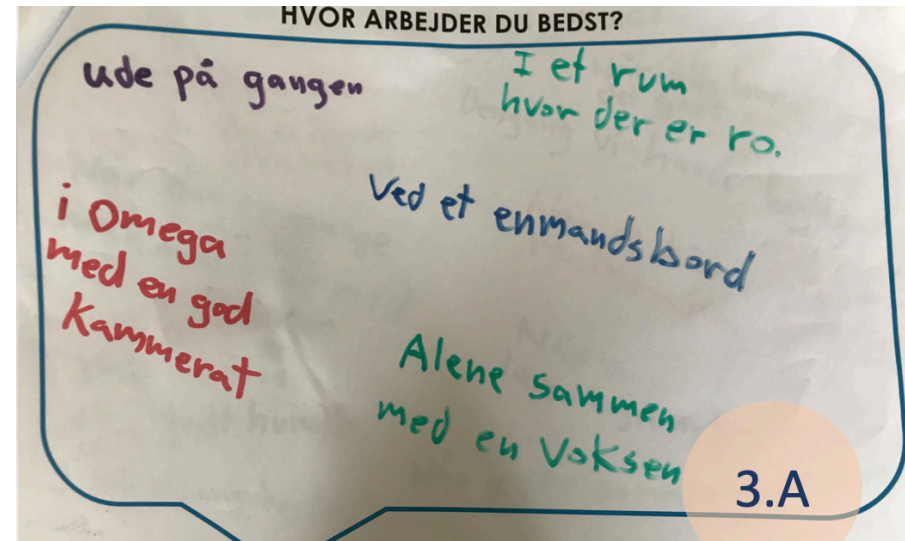 HVOR ARBEJDER DU BEDST?
ude på gangen
I et rum
hvor der er ro.
Ved et enmandsbord
i Omega
med en god
Kammerat
Alene sammen
med en Voksen
3.A